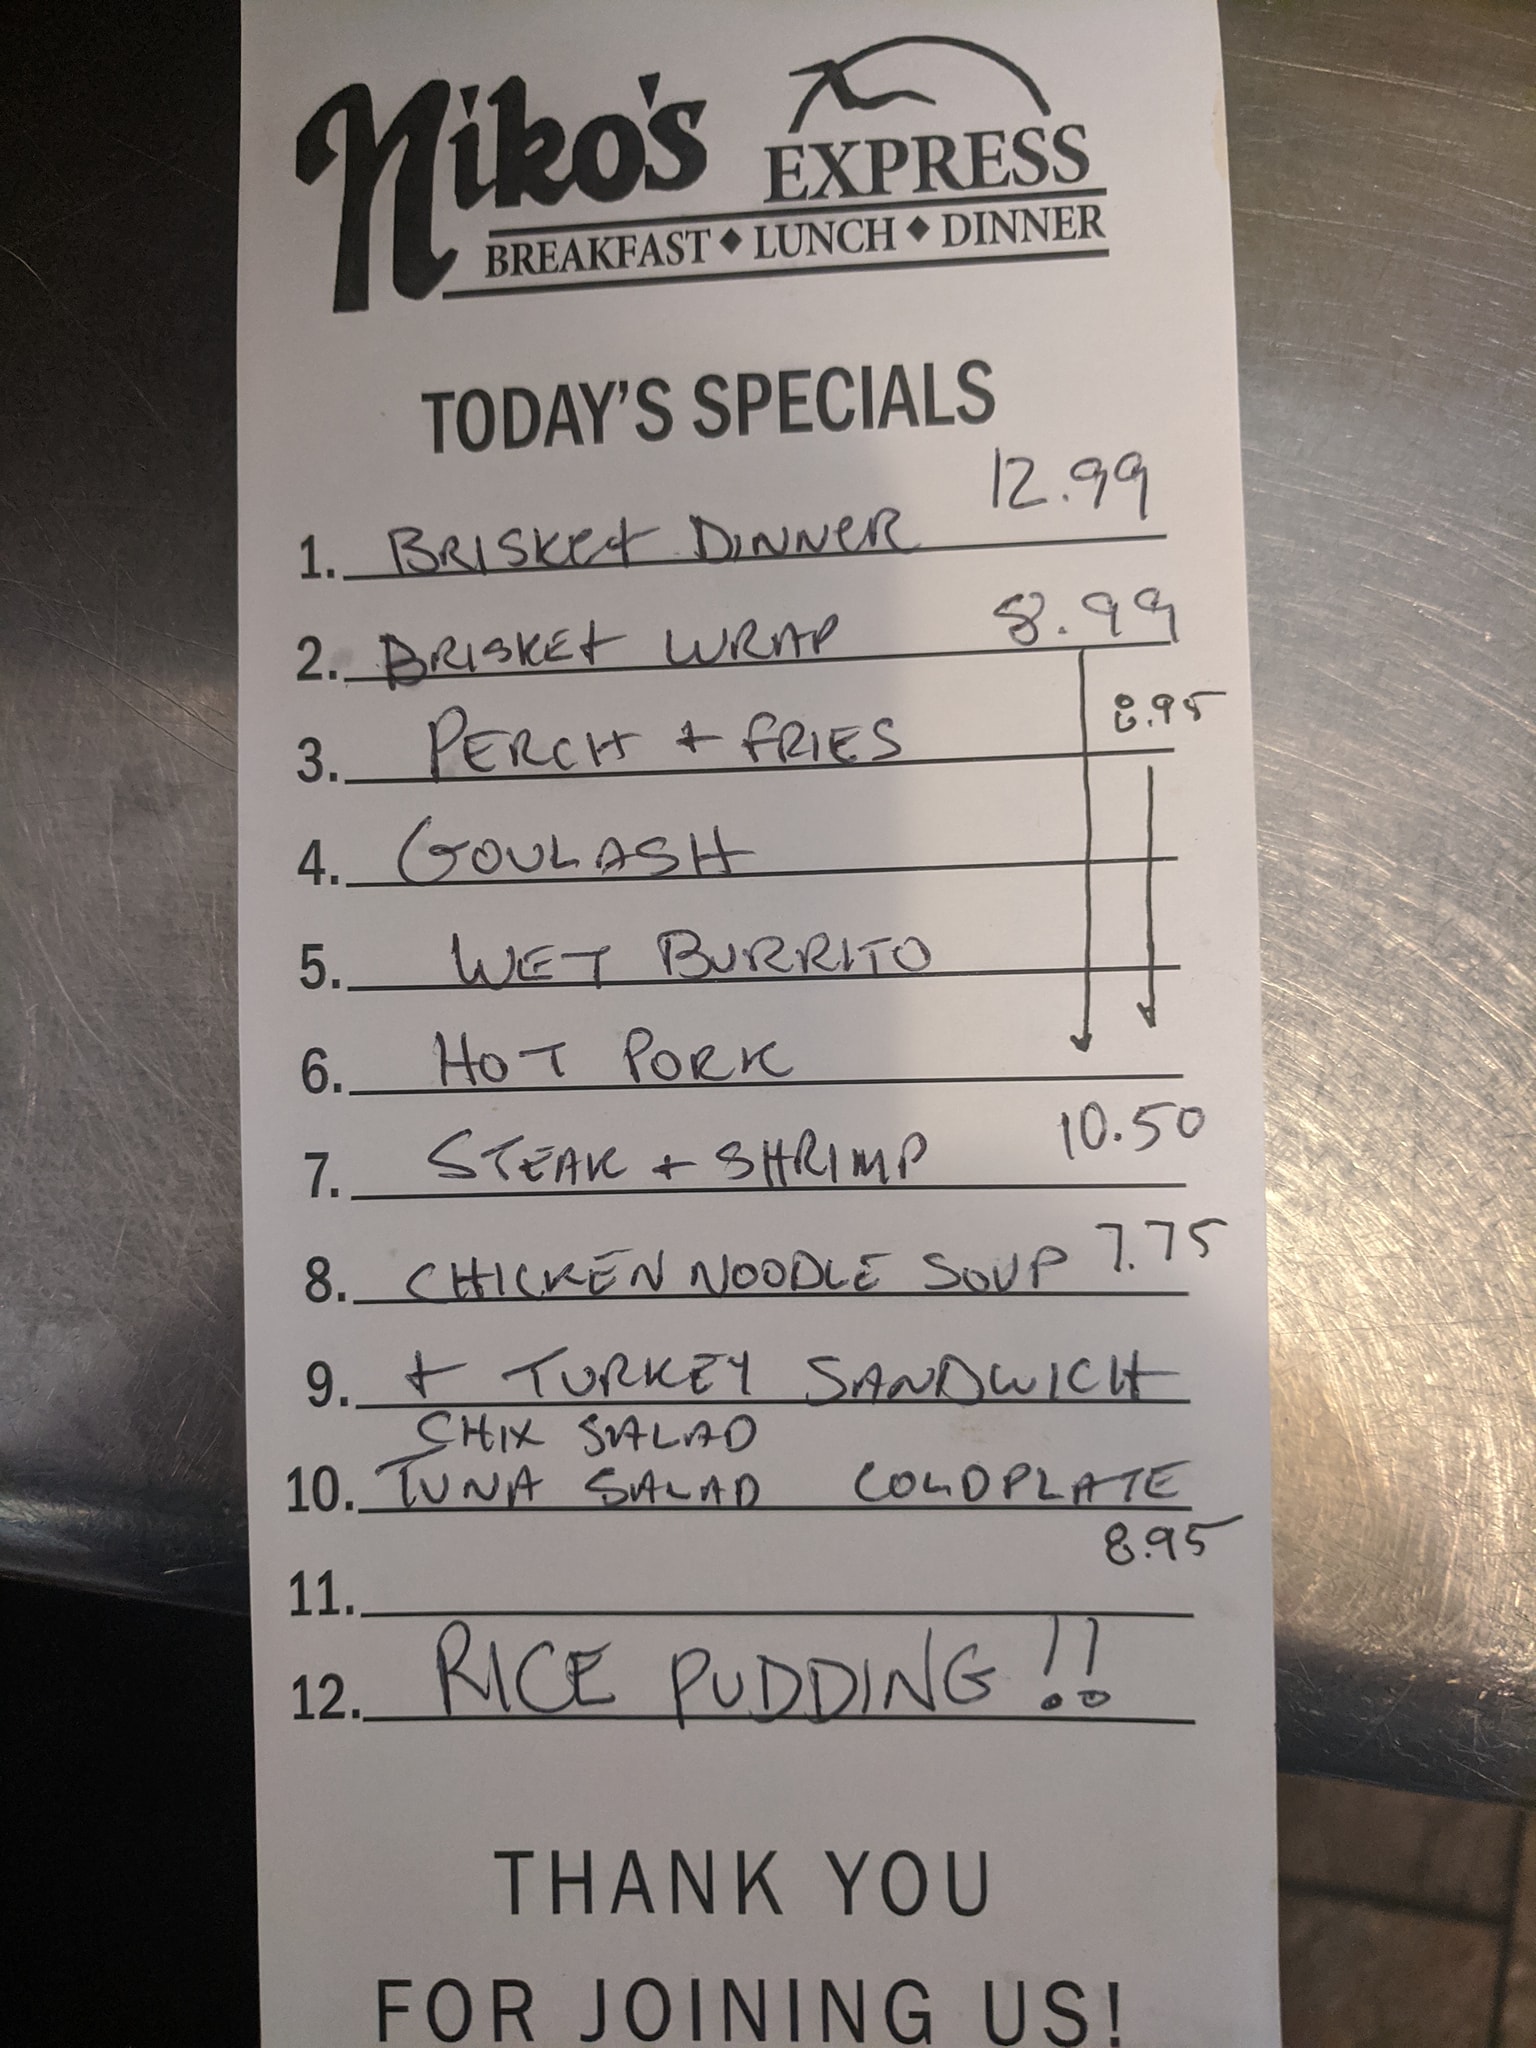 Niko's EXPRESS
BREAKFAST ♦ LUNCH ♦ DINNER
TODAY'S SPECIALS
1. BRISKET DINNER 12.99
2. BRISKET WRAP 8.99
3. PERCH + FRIES 8.95
4. GOULASH
5. WET BURRITO
6. HOT PORK
7. STEAK + SHRIMP 10.50
8. CHICKEN NOODLE SOUP 7.75
9. + TURKEY SANDWICH
CHIX SALAD
10. TUNA SALAD COLDPLATE
8.95
11.
12. RICE PUDDING!!
THANK YOU
FOR JOINING US!